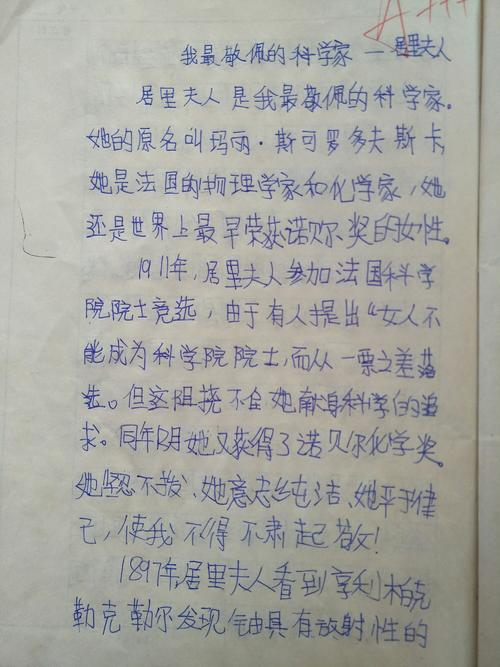 A+++
我最敬佩的科学家 — 居里夫人
居里夫人是我最敬佩的科学家。
她的原名叫玛丽·斯可罗多夫斯卡,
她是法国的物理学家和化学家,她
还是世界上最早荣获诺贝尔奖的女性。
1911年,居里夫人参加法国科学
院院士竞选,由于有人提出“女人不
能成为科学院院士,而从一票之差落
选。但这阻挠不住她献身科学的追
求。同年12月她又获得了诺贝尔化学奖。
她坚忍不拔、她意志纯洁、她严于律
己,使我不得不肃起敬!
1897年,居里夫人看到享利柏克
勒克勒尔发现铀具有放射性的